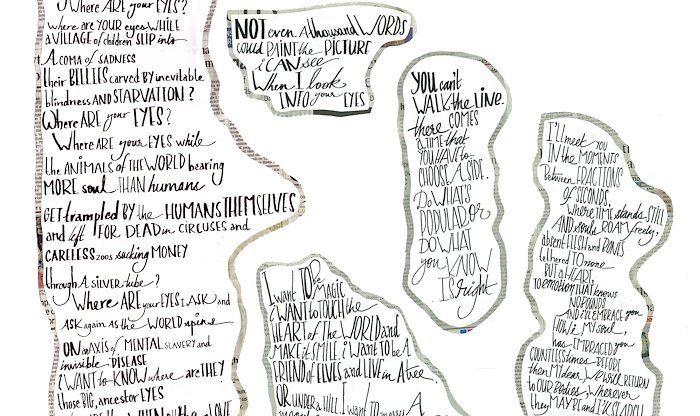 Where ARE your EYES?
where are YOUR eyes WHILE
a VILLAGE of children SLIP into
A COMA of SADNESS
their BELLIES carved BY inevitable
blindness AND STARVATION?
Where ARE your EYES?
Where ARE your EYES while
the ANIMALS of THE WORLD bearing
MORE soul THAN humans
GET trampled BY the HUMANS THEMSELVES
and left FOR DEAD in CIRCUSES and
CARELESS zoos sucking MONEY
through A SILVER tube?
Where ARE your EYES I ASK and
ASK again AS the WORLD spins
ON an AXIS of MENTAL SLAVERY and
invisible DISEASE
i WANT to KNOW where are THEY
those BIG, ancestor EYES
NOT even A thousand WORDS
could PAINT the PICTURE
i CAN see
When I look
INTO your EYES
YOU can't
WALK the LINE.
there COMES
A TIME that
YOU HAVE to
CHOOSE A SIDE.
DO WHAT'S
POPULAR, or
DO WHAT
you KNOW
IS right
I want TO be
MAGIC
i WANT to TOUCH the
HEART of THE WORLD and
MAKE it SMILE. i WANT to BE A
FRIEND of ELVES and LIVE in A tree.
OR UNDER a HILL. I WANT to
I'll meet YOU
IN the MOMENTS
between FRACTIONS
of SECONDS,
Where TIME stands STILL
AND souls ROAM freely,
absent FLESH and BONES
tethered TO none
BUT a HEART,
TO emotion THAT knows
NO BOUNDS
and i'll EMBRACE you
HOW i, MY soul,
has EMBRACED you
COUNTLESS times BEFORE
then MY dear, We will RETURN
to OUR Bodies, Wherever
they MAY BE and